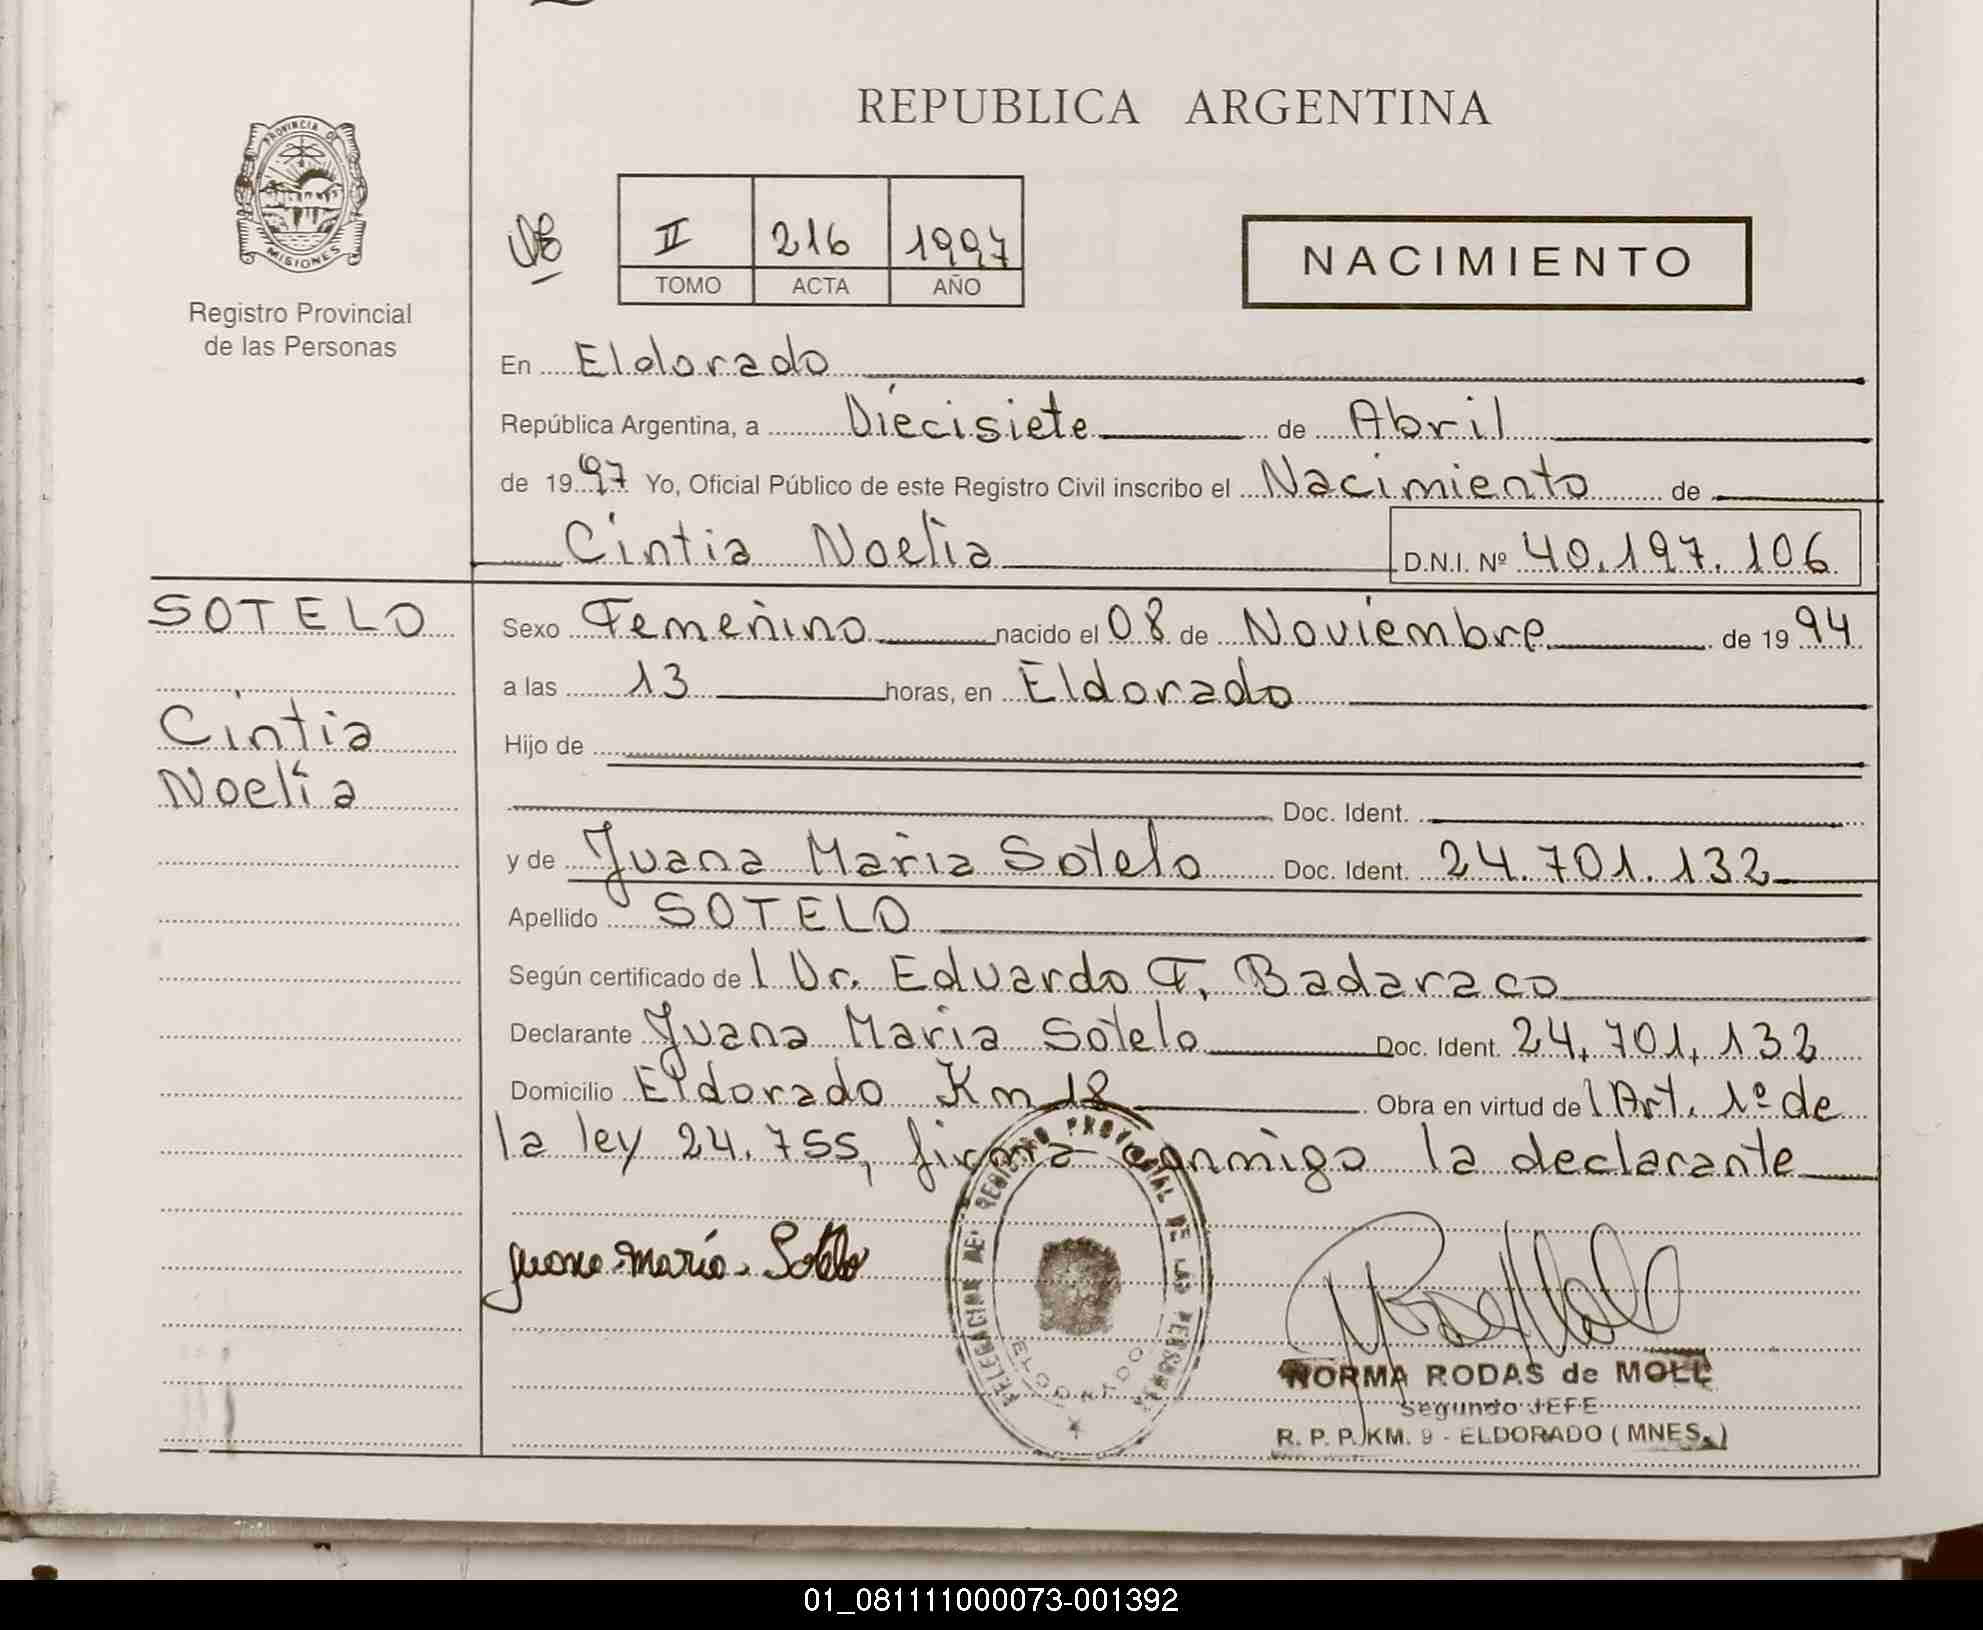 REPUBLICA ARGENTINA
PROVINCIA DE
MISIONES
Registro Provincial
de las Personas
II 216 1997
TOMO ACTA AÑO
NACIMIENTO
En Eldorado
República Argentina, a Diecisiete de Abril
de 1997 Yo, Oficial Público de este Registro Civil inscribo el Nacimiento de
Cintia Noelia D.N.I. Nº 40.197.106
SOTELO
Cintia
Noelia
Sexo Femenino nacido el 08 de Noviembre de 1994
a las 13 horas, en Eldorado
Hijo de
Doc. Ident.
y de Juana Maria Sotelo Doc. Ident. 24.701.132
Apellido SOTELO
Según certificado de l Dr. Eduardo F. Badaraco
Declarante Juana Maria Sotelo Doc. Ident. 24.701.132
Domicilio Eldorado Km 18 Obra en virtud de l Art. 1º de
la ley 24.755, firma conmigo la declarante
Juana María Sotelo
DELEGACION DEL REGISTRO PROVINCIAL DE LAS PERSONAS
ELDORADO
NORMA RODAS de MOLL
Segundo JEFE
R. P. P. KM. 9 - ELDORADO ( MNES. )
01_081111000073-001392